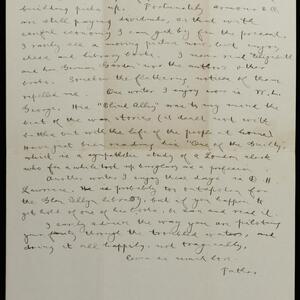 building picks up. Fortunately Armour & Co.
are still paying dividends, so that with
careful economy I can get by for the present.
I rarely see a moving picture now, but enjoy
chess and library books. I never read "Elizabeth
and her German Garden" nor the author's other
books. Somehow the flattering notices of them
repelled me. One writer I enjoy more is W. L.
George. His "Blind Alley" was to my mind the
best of the war stories (it dealt not with
battles but with the life of the people at home).
Have just been reading his "One of the Guilty",
which is a sympathetic study of a London clerk
who for a while took up burglary as a profession.
Another writer I enjoy these days is D. H.
Lawrence. He is probably too outspoken for
the Glen Ellyn library, but if you happen to
get hold of one of his books, be sure and read it.
I surely admire the way you are piloting
your family through the troubled waters, and
doing it all happily, not tragically,
Love as much as ever
Father